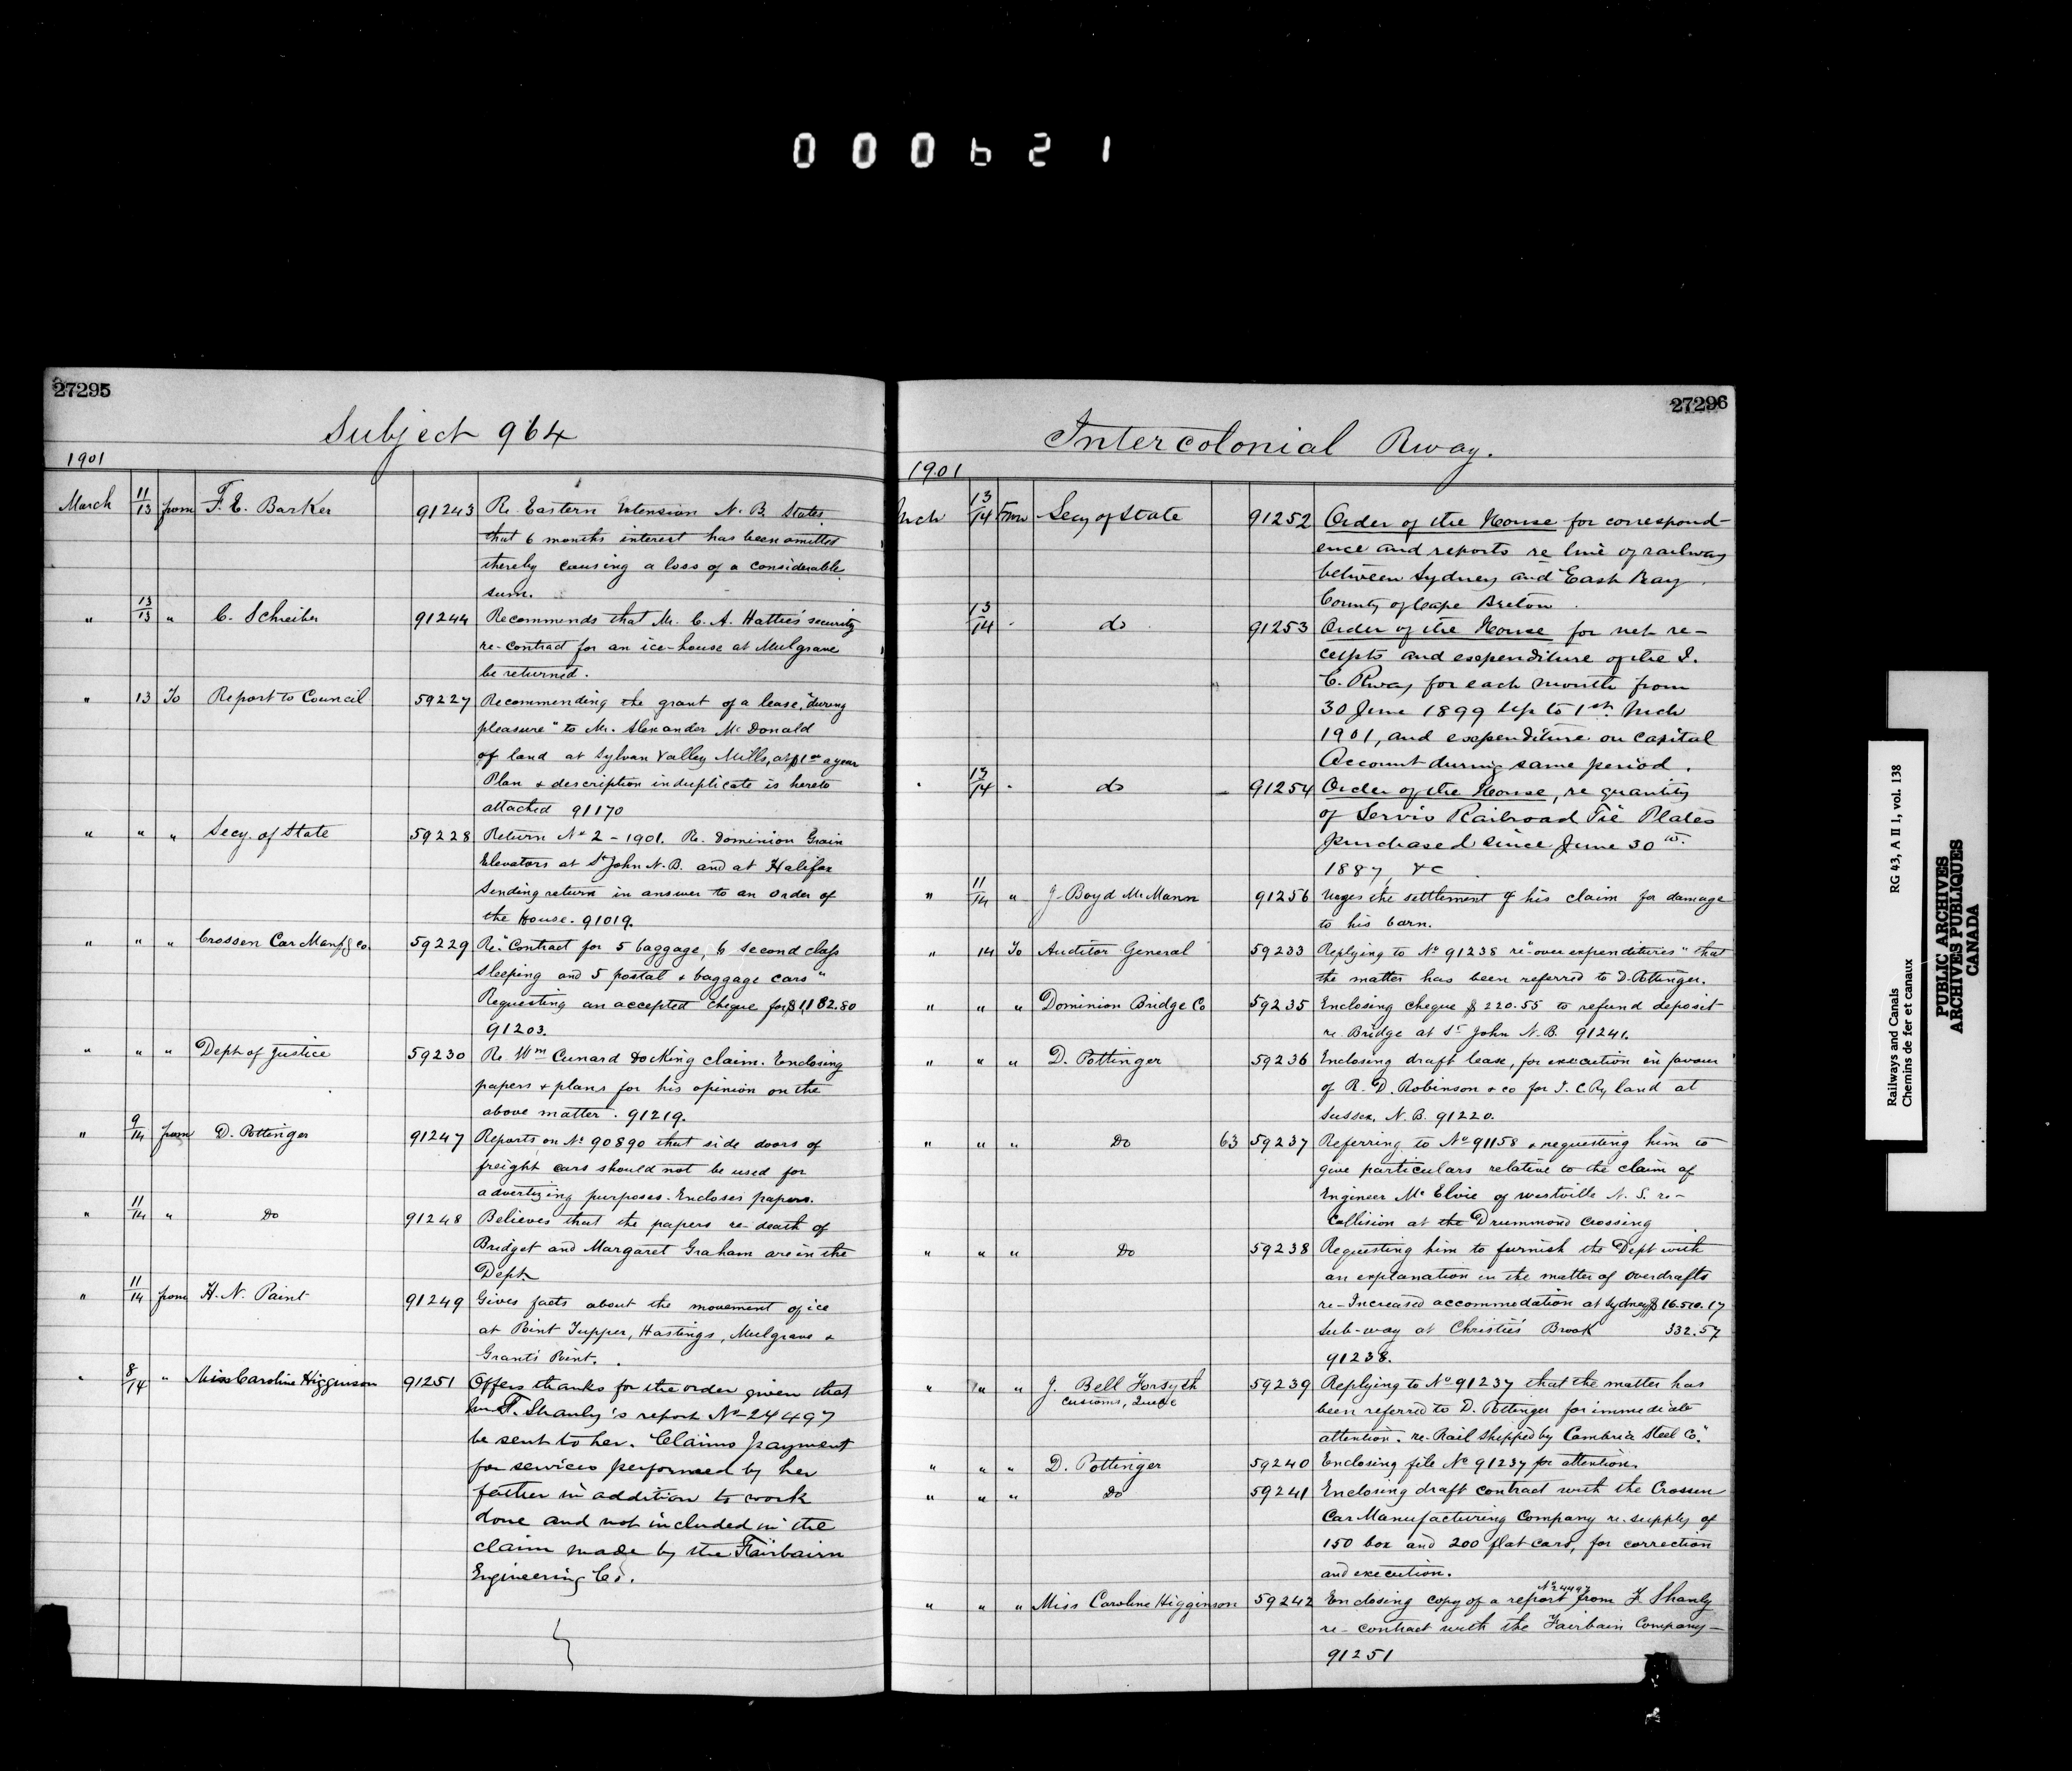 000621
27295
Subject 964
1901
March 11/13 from F. E. Barker 91243 Re. Eastern Extension N. B. States
that 6 months interest has been omitted
thereby causing a loss of a considerable
sum.
" 13/13 " C. Schreiber 91244 Recommends that Mr. C. A. Hattie's security
re-contract for an ice-house at Mulgrave
be returned.
" 13 To Report to Council 59227 Recommending the grant of a lease, "during
pleasure" to Mr. Alexander McDonald
of land at Sylvan Valley Mills, at $1.00 a year
Plan & description in duplicate is hereto
attached 91170
" " " Secy. of State 59228 Return No 2 - 1901. Re. Dominion Grain
Elevators at St John N.B. and at Halifax
Sending return in answer to an order of
the House. 91019.
" " " Crossen Car Manfg Co 59229 Re. "Contract for 5 baggage, 6 second class
sleeping and 5 postal & baggage cars"
Requesting an accepted cheque for $1,182.80
91203.
" " " Dept of Justice 59230 Re. Wm Cunard Docking claim. Enclosing
papers & plans for his opinion on the
above matter. 91219.
" 9/14 from D. Pottinger 91247 Reports on No 90890 that side doors of
freight cars should not be used for
advertizing purposes. Encloses papers.
" 11/14 " Do 91248 Believes that the papers re-death of
Bridget and Margaret Graham are in the
Dept.
" 11/14 from H. N. Paint 91249 Gives facts about the movement of ice
at Point Tupper, Hastings, Mulgrave &
Grant's Point.
" 8/14 " Miss Caroline Higginson 91251 Offers thanks for the order given that
F. Shanly's report No 24497
be sent to her. Claims payment
for services performed by her
father in addition to work
done and not included in the
claim made by the Fairbairn
Engineering Co.
27296
Intercolonial Rway.
1901
Mch 13/14 From Secy of State 91252 Order of the House for correspond-
ence and reports re line of railway
between Sydney and East Bay
County of Cape Breton.
13/14 " do 91253 Order of the House for net re-
ceipts and expenditure of the I.
C. Rway for each month from
30 June 1899 up to 1st Mch
1901, and expenditure on Capital
Account during same period.
" 13/14 " do 91254 Order of the House, re quantity
of Servis Railroad Tie Plates
purchased since June 30th
1887, &c
" 11/14 " J. Boyd McMann 91256 Urges the settlement of his claim for damage
to his barn.
" 14 To Auditor General 59233 Replying to No 91238 re "over expenditures" that
the matter has been referred to D. Pottinger.
" " " Dominion Bridge Co 59235 Enclosing cheque $220.55 to refund deposit
re. Bridge at St John N.B. 91241.
" " " D. Pottinger 59236 Enclosing draft lease, for execution in favour
of R. D. Robinson & Co for I. C. Ry land at
Sussex, N. B. 91220.
" " " Do 63 59237 Referring to No 91158 & requesting him to
give particulars relative to the claim of
Engineer McElvie of Westville N. S. re-
Collision at the Drummond Crossing
" " " Do 59238 Requesting him to furnish the Dept with
an explanation in the matter of overdrafts
re-Increased accommodation at Sydney $16.510.17
Sub-way at Christie's Brook 332.57
91238.
" " " J. Bell Forsyth 59239 Replying to No 91237 that the matter has
Customs, Quebec
been referred to D. Pottinger for immediate
attention. re-Rail shipped by Cambria Steel Co."
" " " D. Pottinger 59240 Enclosing file No 91237 for attention.
" " " Do 59241 Enclosing draft contract with the Crossen
Car Manufacturing Company re. supply of
150 box and 200 flat cars, for correction
and execution.
No 24497
" " " Miss Caroline Higginson 59242 Enclosing copy of a report from F Shanly
re- contract with the Fairbairn Company-
91251
Railways and Canals RG 43, A II 1, vol. 138
Chemins de fer et canaux
PUBLIC ARCHIVES
ARCHIVES PUBLIQUES
CANADA